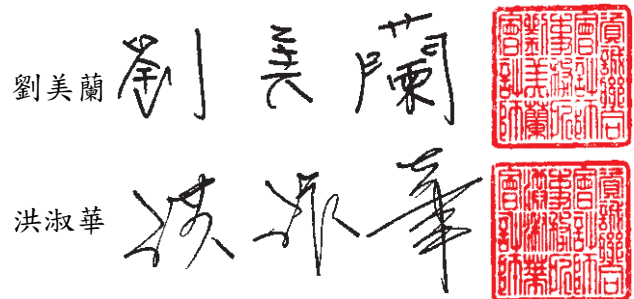 劉美蘭 劉美蘭
資誠聯合
會計師
事務所
劉美蘭
會計師
洪淑華 洪淑華
資誠聯合
會計師
事務所
洪淑華
會計師